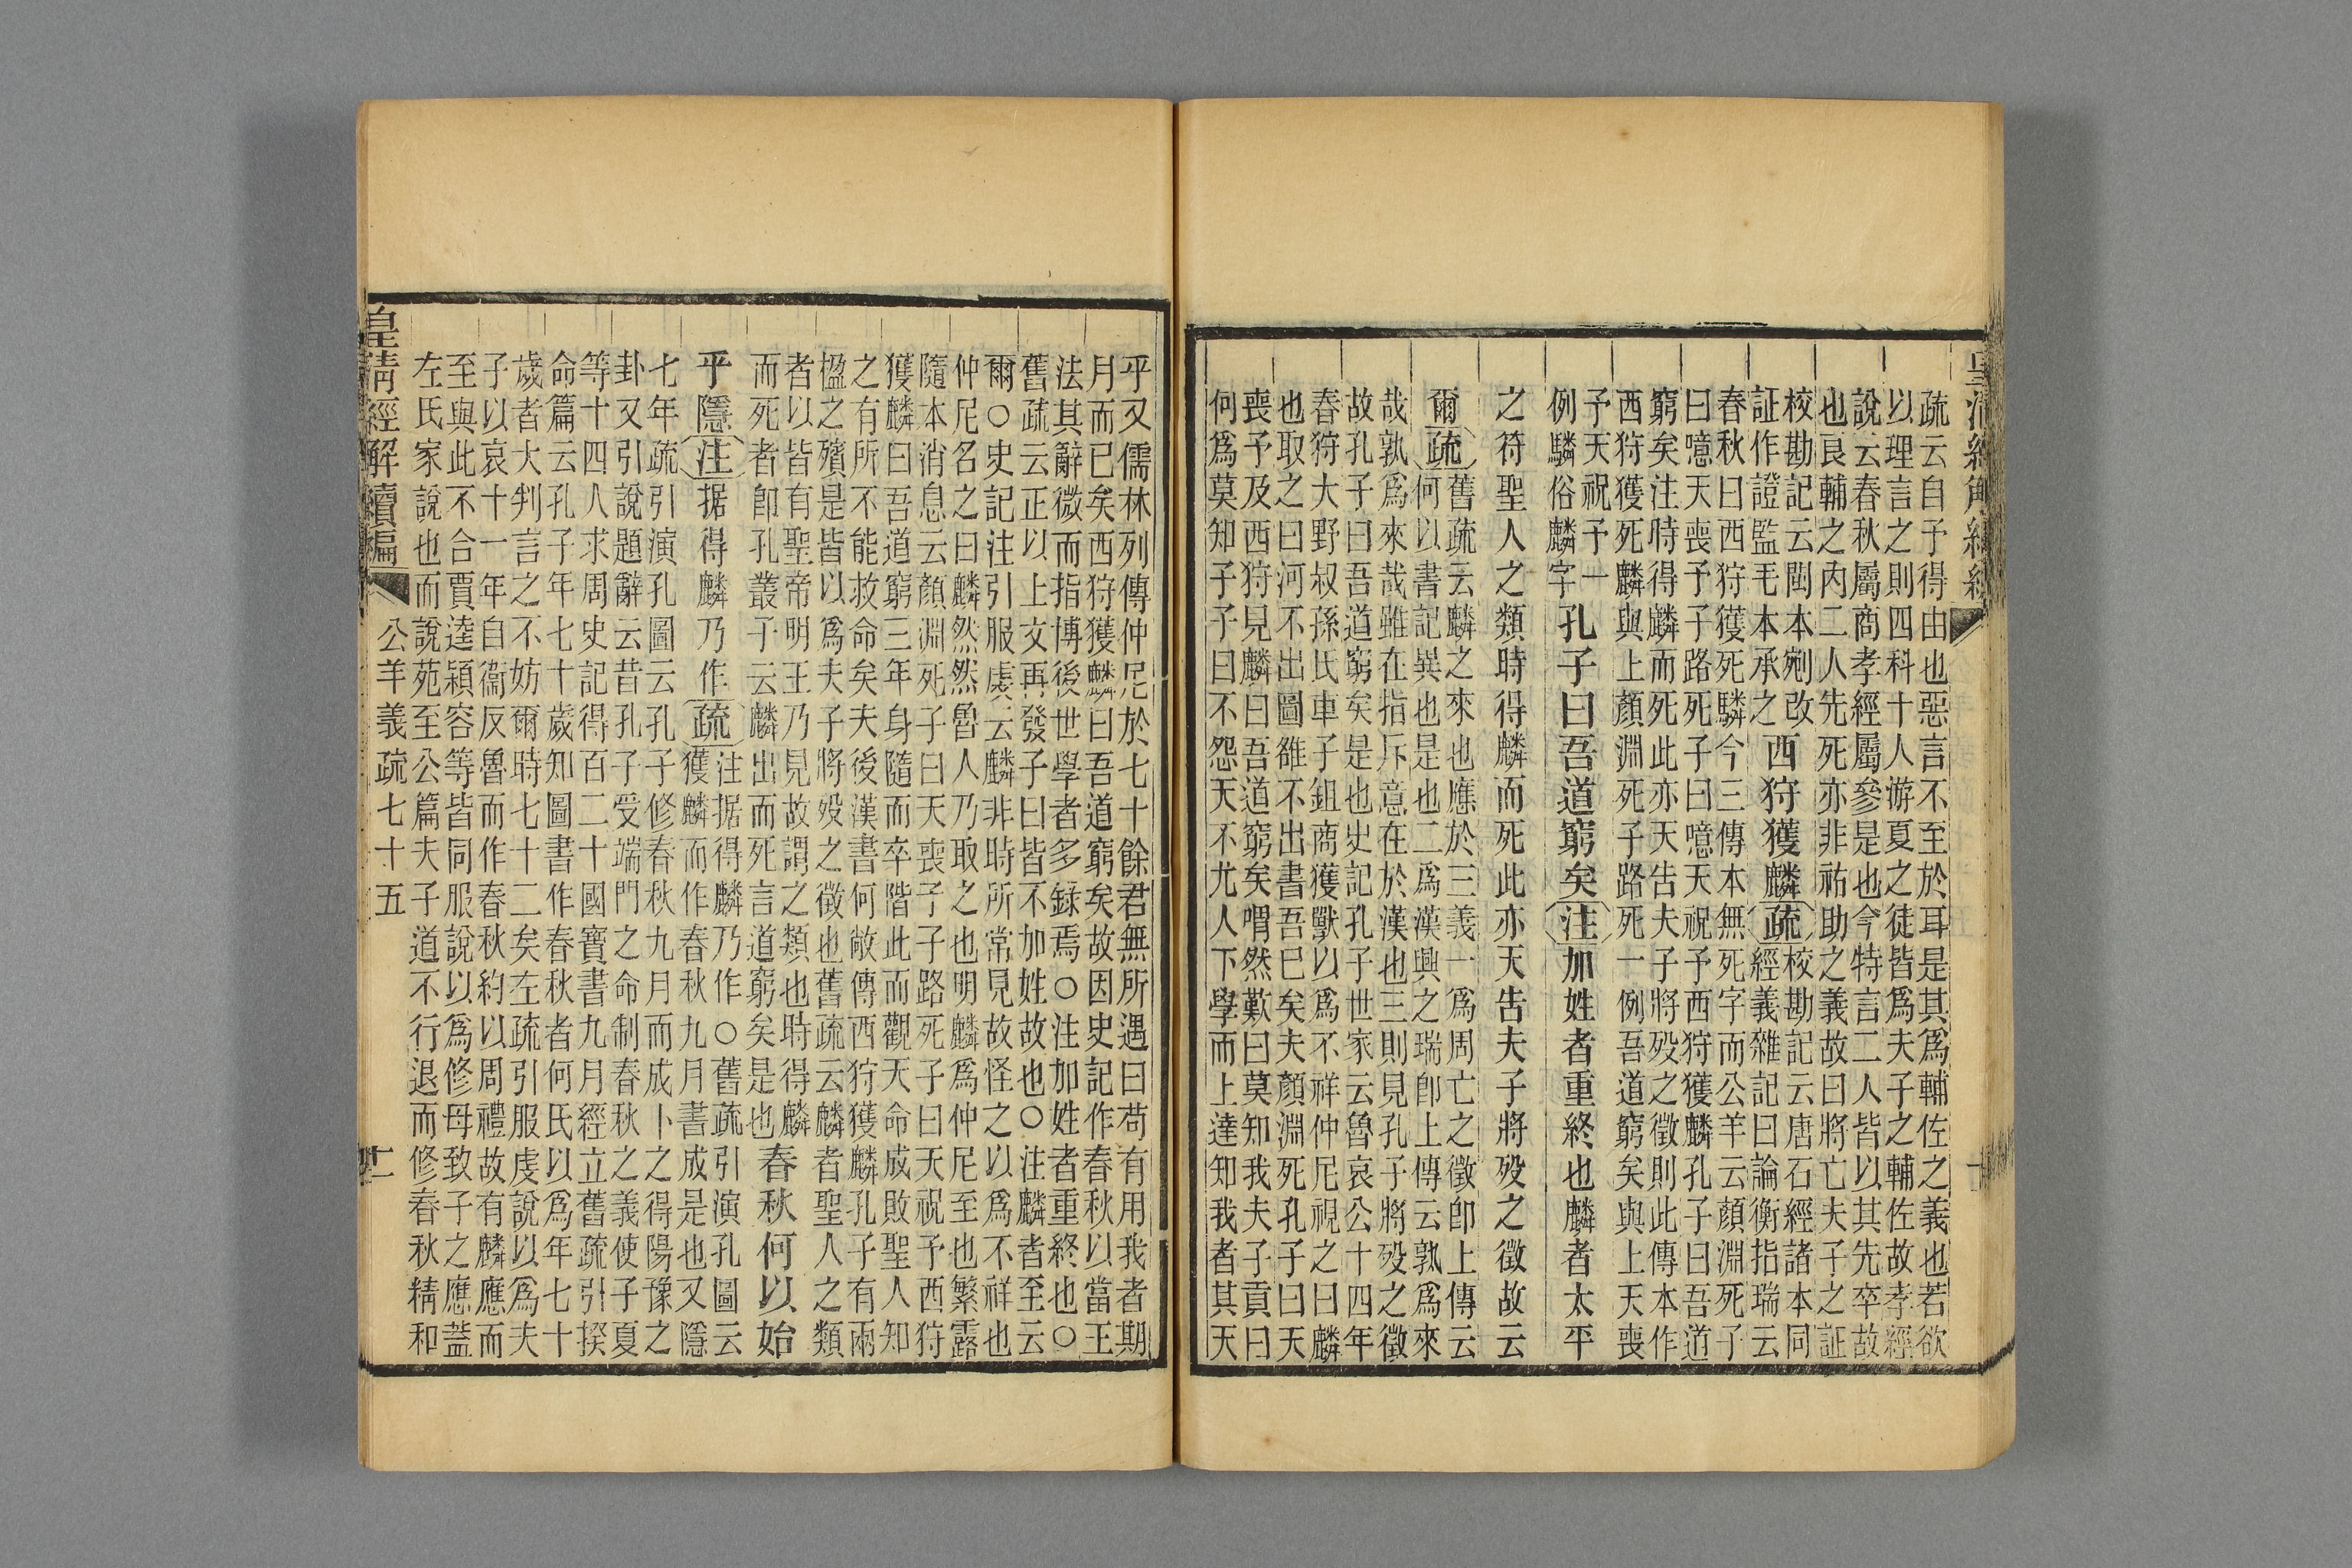 皇清經解續編
疏云自子得由也惡言不至於耳是其爲輔佐之義也若欲
以理言之則四科十人游夏之徒皆爲夫子之輔佐故孝經
說云春秋屬商孝經屬參是也今特言二人皆以其先卒故
也良輔之內二人先死亦非祐助之義故曰將亡夫子之証
校勘記云閩本剜改
証作證監毛本承之西狩獲麟疏校勘記云唐石經諸本同
經義雜記曰論衡指瑞云
春秋曰西狩獲死驎今三傳本無死字而公羊云顏淵死子
曰噫天喪予子路死子曰噫天祝予西狩獲麟孔子曰吾道
窮矣注時得麟而死此亦天告夫子將歿之徵則此傳本作
西狩獲死麟與上顏淵死子路死一例吾道窮矣與上天喪
予天祝予一
例驎俗麟字孔子曰吾道窮矣注加姓者重終也麟者太平
之符聖人之類時得麟而死此亦天告夫子將歿之徵故云
爾疏舊疏云麟之來也應於三義一爲周亡之徵即上傳云
何以書記異也是也二爲漢興之瑞即上傳云孰爲來
哉孰爲來哉雖在指斥意在於漢也三則見孔子將歿之徵
故孔子曰吾道窮矣是也史記孔子世家云魯哀公十四年
春狩大野叔孫氏車子鉏商獲獸以爲不祥仲尼視之曰麟
也取之曰河不出圖雒不出書吾已矣夫顏淵死孔子曰天
喪予及西狩見麟曰吾道窮矣喟然歎曰莫知我夫子貢曰
何爲莫知子子曰不怨天不尤人下學而上達知我者其天
乎又儒林列傳仲尼於七十餘君無所遇曰苟有用我者期
月而已矣西狩獲麟曰吾道窮矣故因史記作春秋以當王
法其辭微而指博後世學者多錄焉○注加姓者重終也○
舊疏云正以上文再發子曰皆不加姓故也○注麟者至云
爾○史記注引服虔云麟非時所常見故怪之以爲不祥也
仲尼名之曰麟然然魯人乃取之也明麟爲仲尼至也繁露
隨本消息云顏淵死子曰天喪予子路死子曰天祝予西狩
獲麟曰吾道窮三年身隨而卒階此而觀天命成敗聖人知
之有所不能救命矣夫後漢書何敞傳西狩獲麟孔子有兩
楹之殯是皆以爲夫子將歿之徵也舊疏云麟者聖人之類
者以皆有聖帝明王乃見故謂之類也時得麟
而死者即孔叢子云麟出而死言道窮矣是也春秋何以始
乎隱注据得麟乃作疏注据得麟乃作○舊疏引演孔圖云
獲麟而作春秋九月書成是也又隱
七年疏引演孔圖云孔子修春秋九月而成卜之得陽豫之
卦又引說題辭云昔孔子受端門之命制春秋之義使子夏
等十四人求周史記得百二十國寶書九月經立舊疏引揆
命篇云孔子年七十歲知圖書作春秋者何氏以爲年七十
歲者大判言之不妨爾時七十二矣左疏引服虔說以爲夫
子以哀十一年自衞反魯而作春秋約以周禮故有麟應而
至與此不合賈逵穎容等皆同服說以爲修母致子之應蓋
左氏家說也而說苑至公篇夫子道不行退而修春秋精和
皇清經解續編
公羊義疏七十五
十一